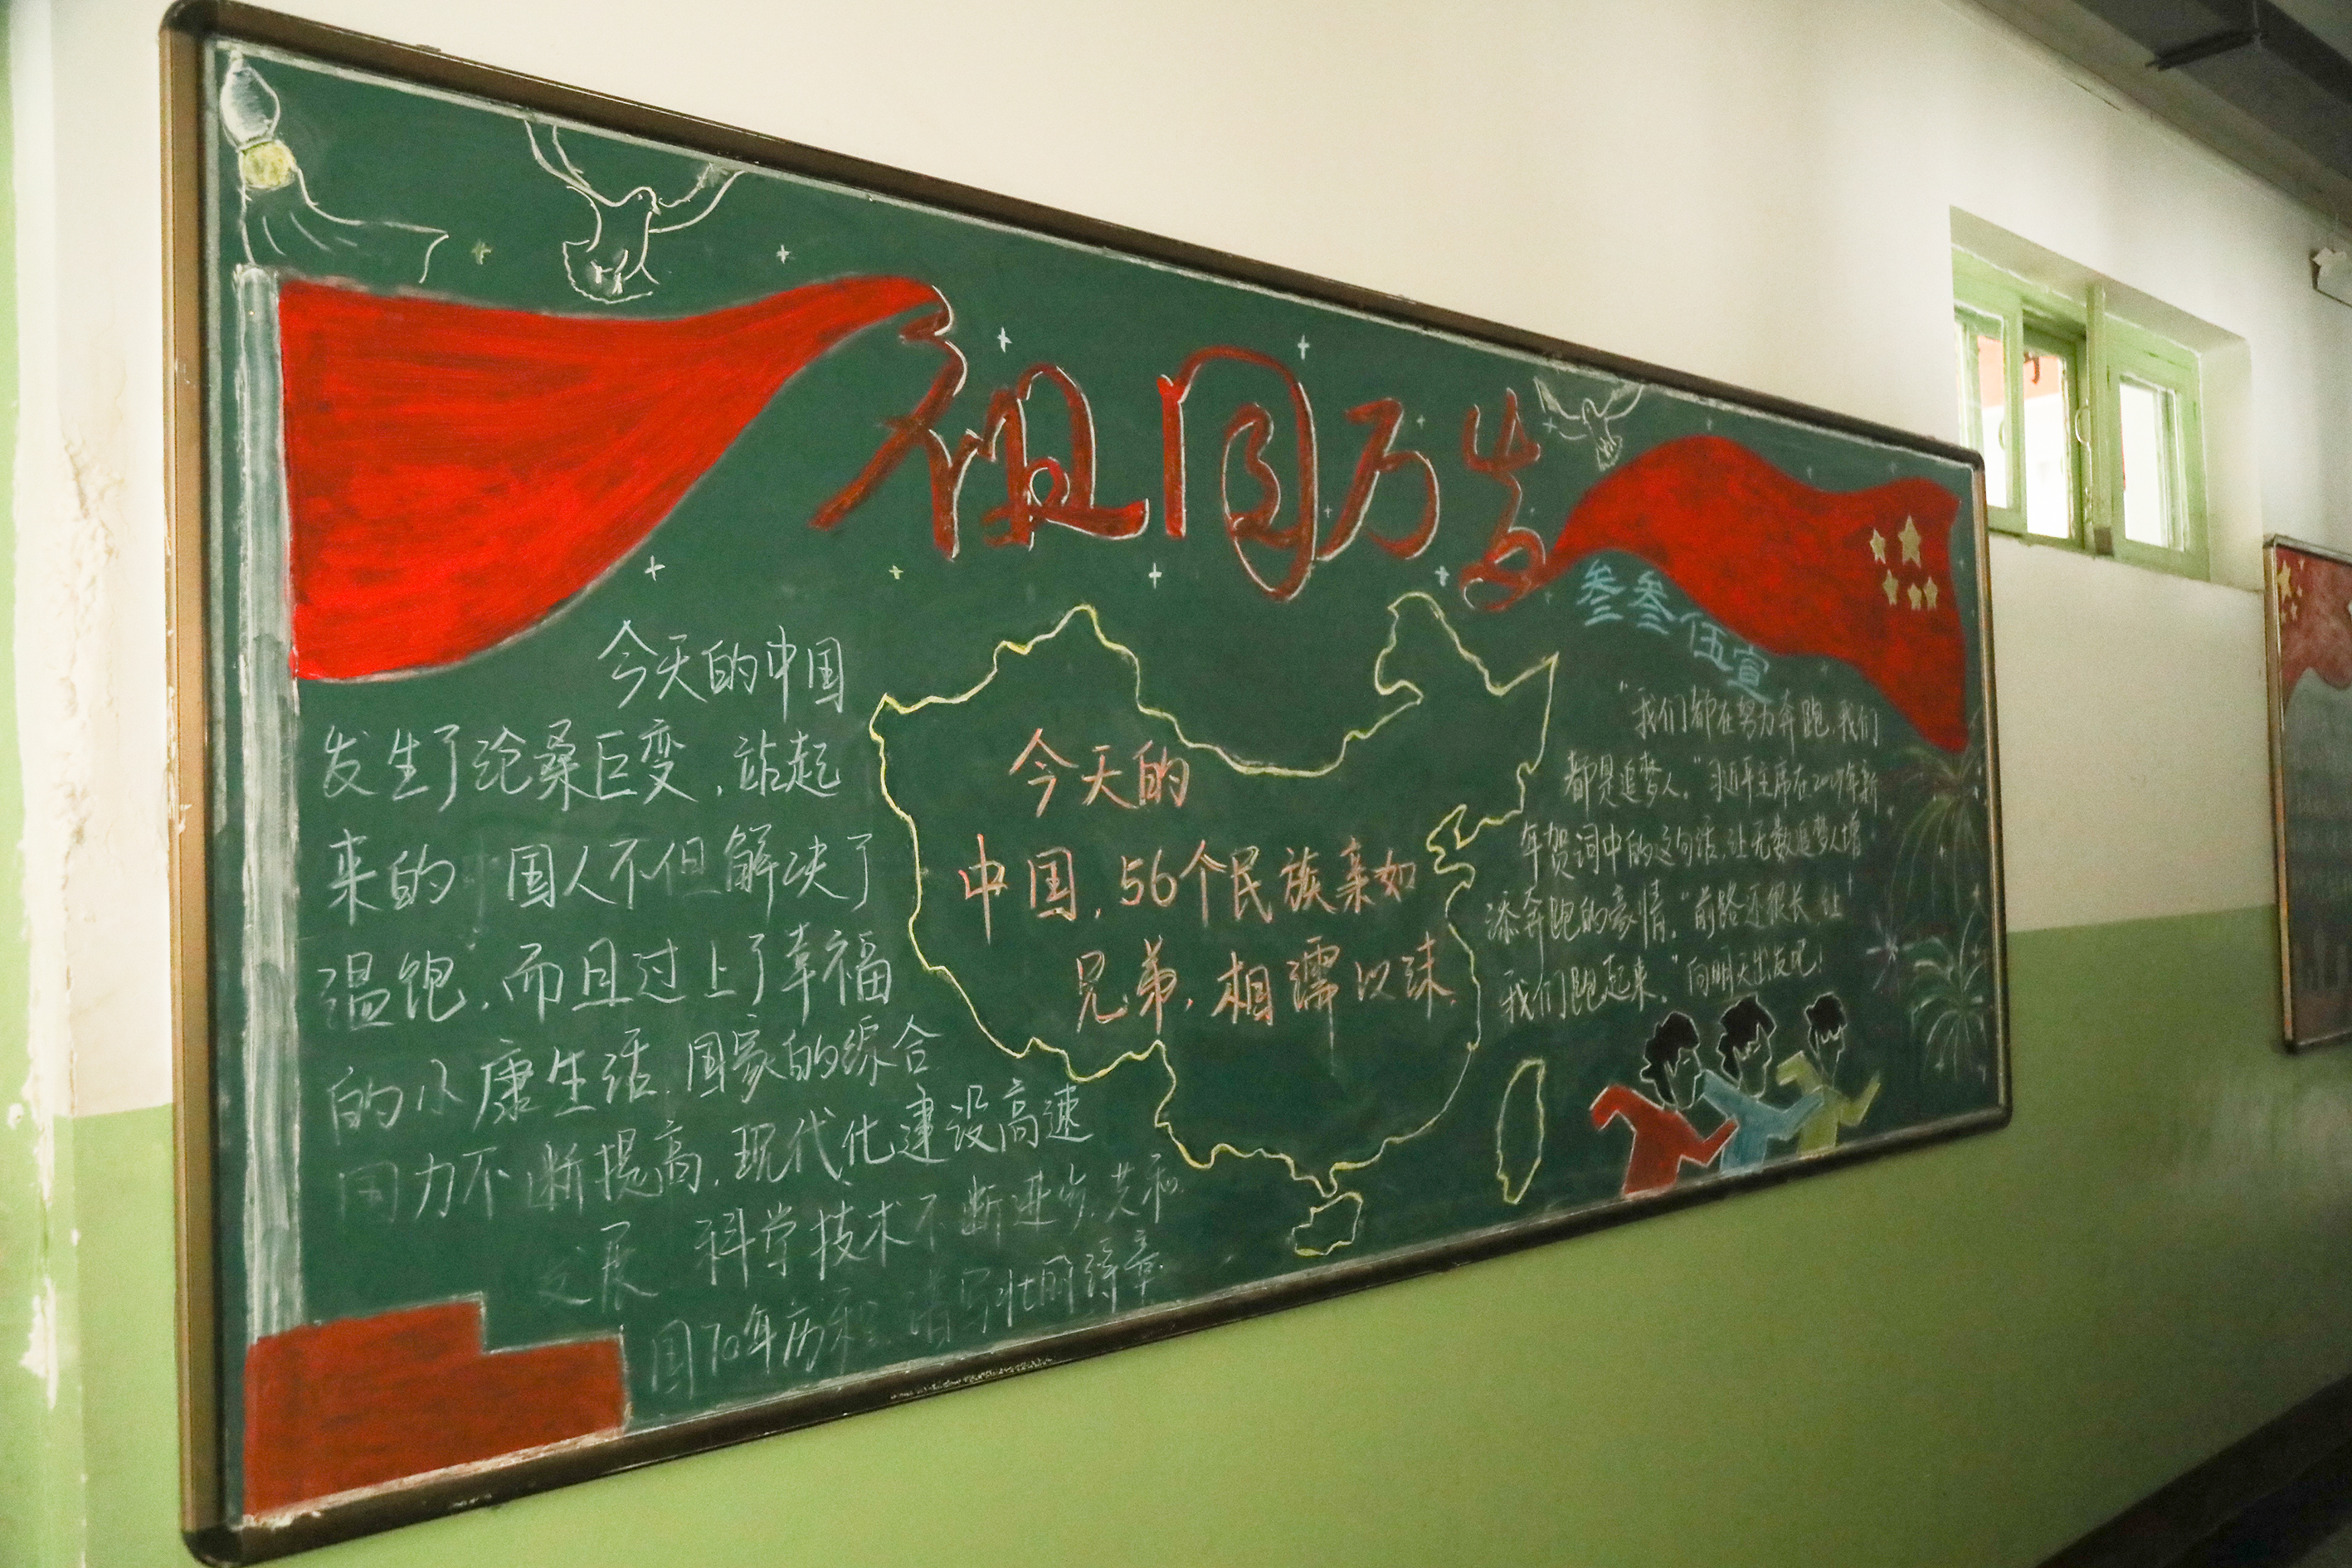 祖国万岁
叁叁伍宣
今天的中国
发生了沧桑巨变，站起
来的 国人不但解决了
温饱，而且过上了幸福
的小康生活，国家的综合
国力不断提高，现代化建设高速
发展 科学技术不断进步，共和
国70年历程 谱写壮丽诗章
今天的
中国，56个民族亲如
兄弟，相濡以沫，
“我们都在努力奔跑，我们
都是追梦人，”习近平主席在2019年新
年贺词中的这句话，让无数追梦人增
添奔跑的豪情，“前路还很长，让
我们跑起来，”向明天出发吧！